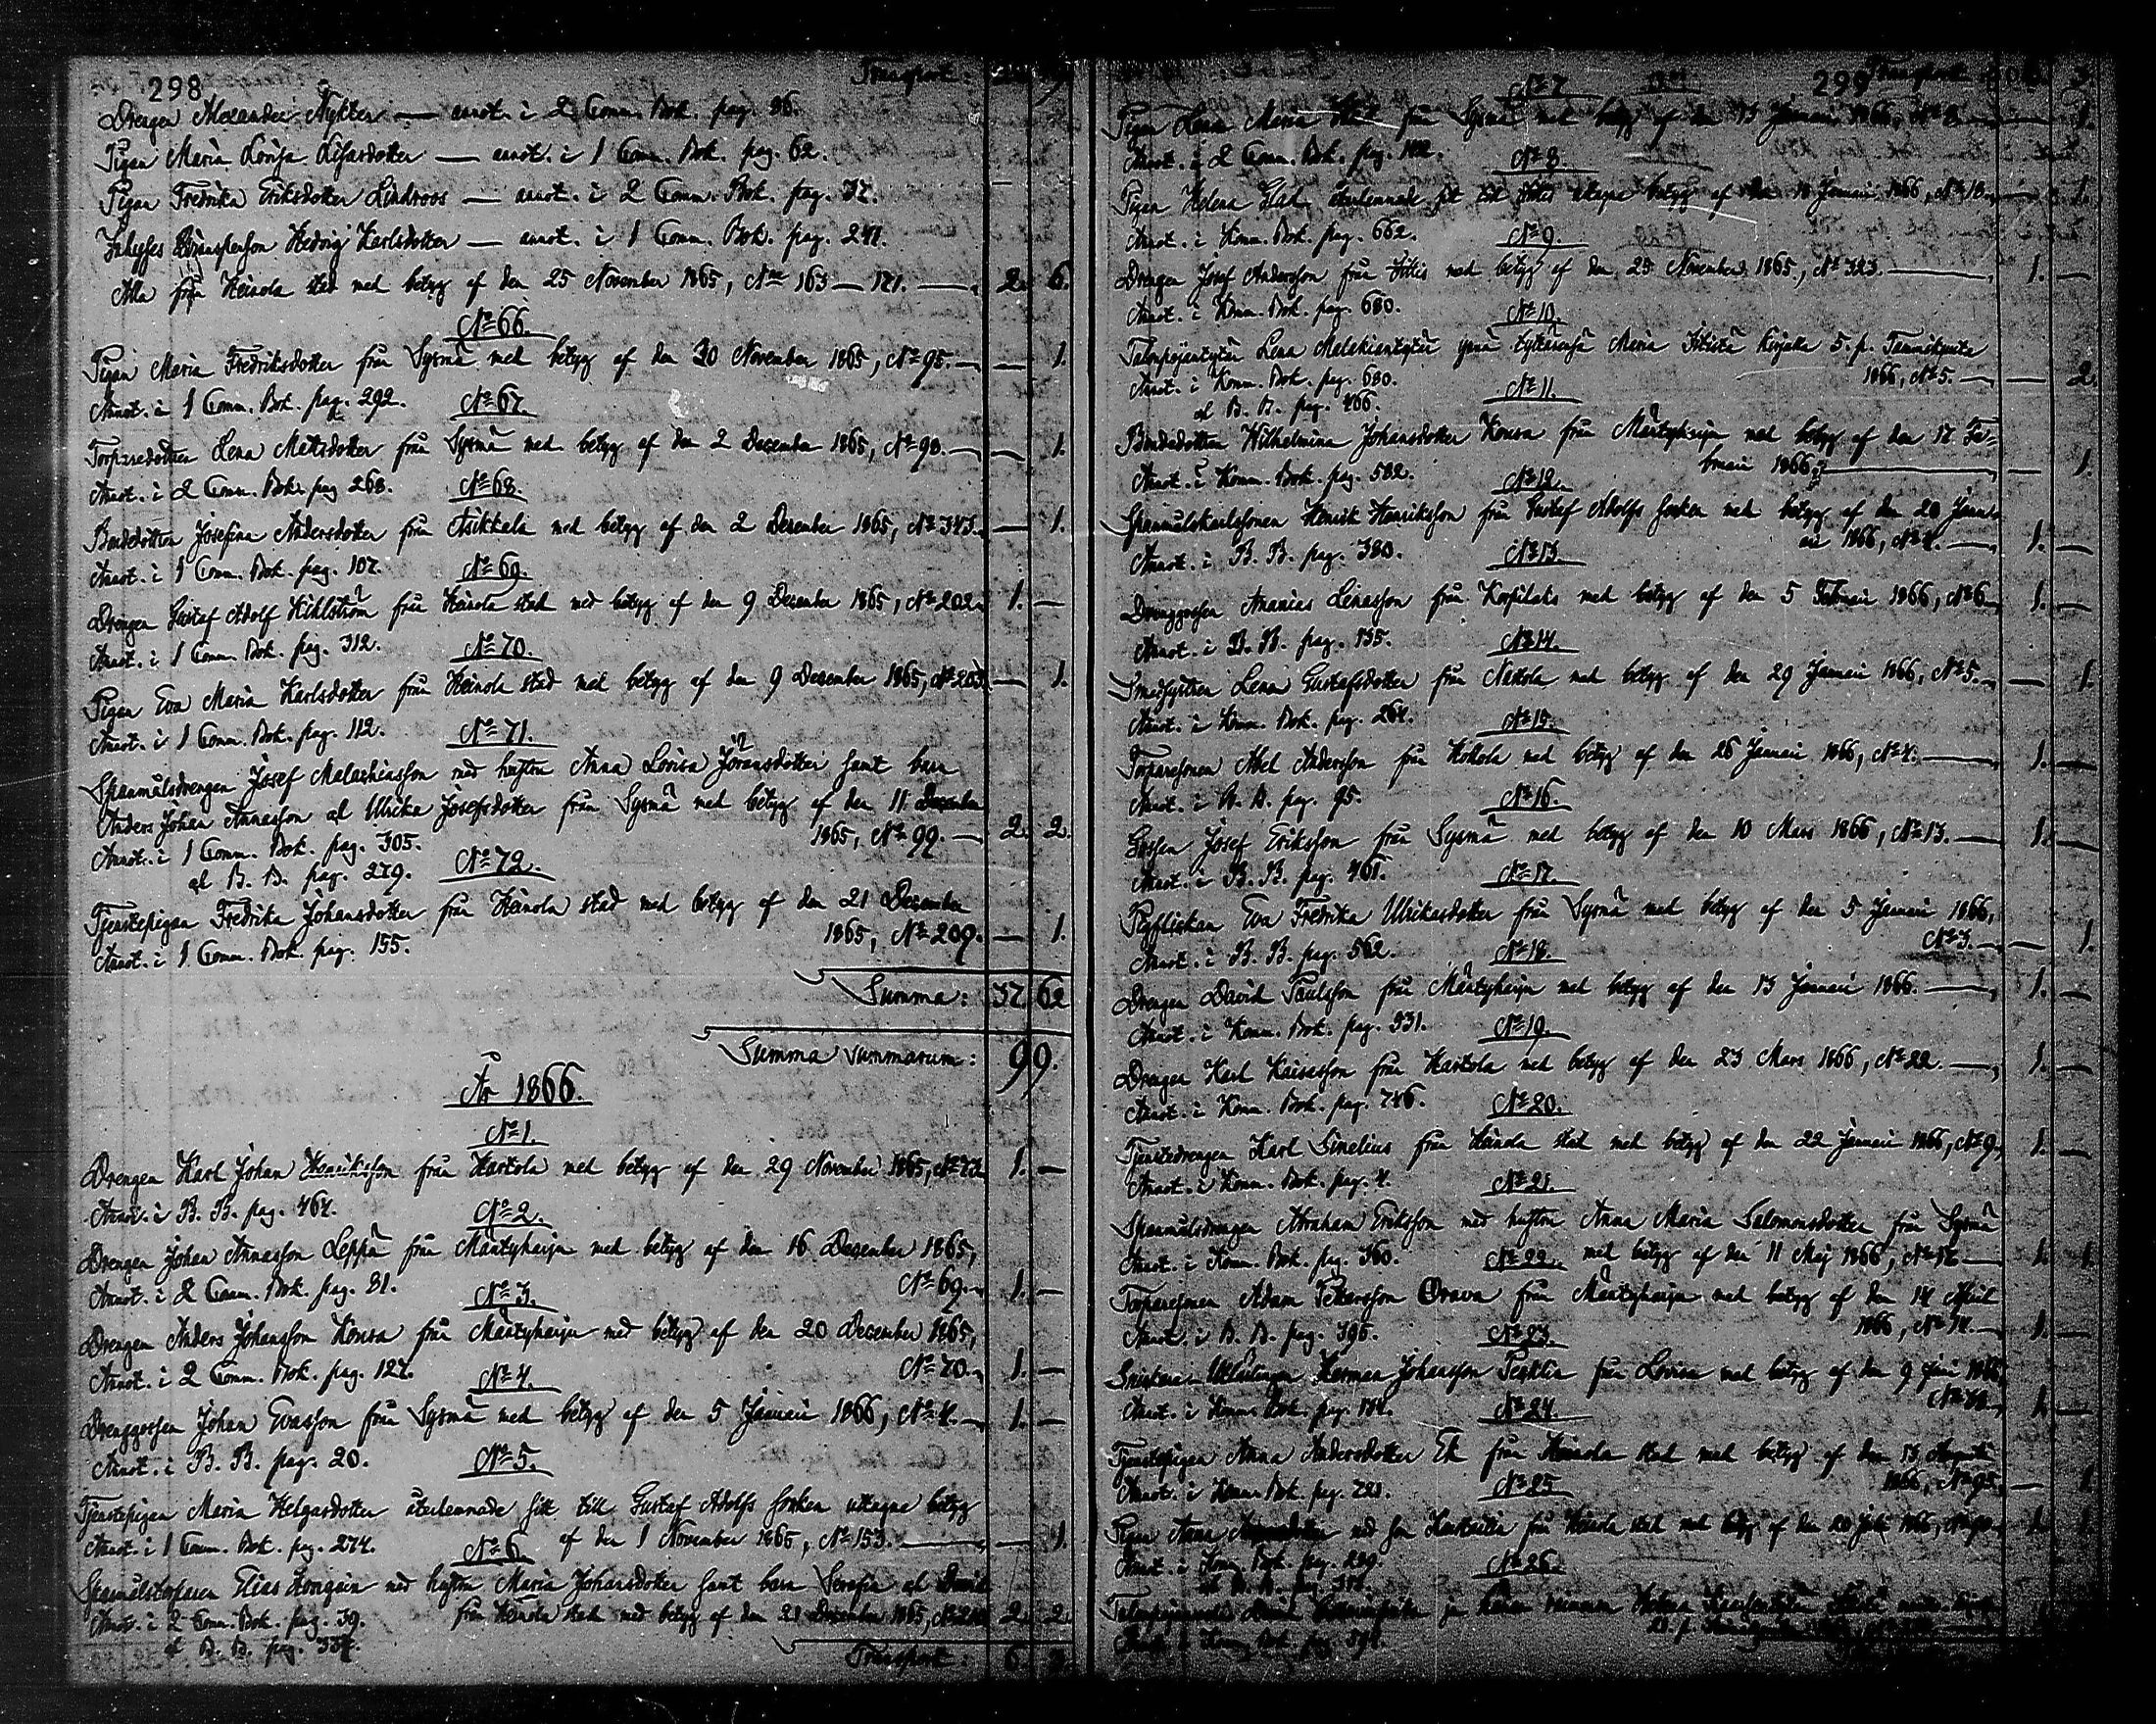 298
Transport:
Drengen Alexander Nykter — annot. i 2 Comm. Bok. pag. 96.
Pigan Maria Lovisa Lisasdotter — annot. i 1 Comm. Bok. pag. 62.
Pigan Fredrika Eriksdotter Lindroos — annot. i 2 Comm. Bok. pag. 32.
Hedvig Karlsdotter — annot. i 1 Comm. Bok. pag. 241.
Alla från Heinola stad med betyg af den 25 November 1865, No 163 — 171. — 2. 6.
No 66.
Pigan Maria Fredriksdotter från Sysmä med betyg af den 30 November 1865, No 95. — — 1.
Annot. i 1 Comm. Bok. pag. 292.
No 67.
Torparedottren Lena Matsdotter från Sysmä med betyg af den 2 December 1865, No 90. — — 1.
Annot. i 2 Comm. Bok. pag 268.
No 68.
Bondedottren Josefina Andersdotter från Asikkala med betyg af den 2 December 1865, No 343. — 1.
Annot. i 1 Comm. Bok. pag. 107.
No 69.
Drengen Gustaf Adolf Kihlström från Heinola stad med betyg af den 9 December 1865, No 202. 1. —
Annot. i 1 Comm. Bok. pag. 312.
No 70.
Pigan Eva Maria Karlsdotter från Heinola stad med betyg af den 9 December 1865, No 203. — 1.
Annot. i 1 Comm. Bok. pag. 112.
No 71.
Spanmålsdrengen Josef Malachiasson med hustru Anna Lovisa Göransdotter samt barn
Anders Johan Annasson och Ulrika Josefsdotter från Sysmä med betyg af den 11 December
1865, No 99. — 2. 2.
Annot. i 1 Comm. Bok. pag. 305.
och B. B. pag. 279.
No 72.
Tjenstepigan Fredrika Johansdotter från Heinola stad med betyg af den 21 December
1865, No 209. — — 1.
Annot. i 1 Comm. Bok. pag. 155.
Summa: 37 62
Summa summarum: 99.
År 1866.
No 1.
Drengen Karl Johan Henriksson från Hartola med betyg af den 29 November 1865, 1. —
Annot. i B. B. pag. 464.
No 2.
Drengen Johan Annasson Leppä från Mäntyharju med betyg af den 16 December 1865,
No 69. — 1. —
Annot. i 2 Comm. Bok. pag. 81.
No 3.
Drengen Anders Johansson Konsa från Mäntyharju med betyg af den 20 December 1865,
No 70. — 1. —
Annot. i 2 Comm. Bok. pag. 127.
No 4.
Drenggossen Johan Evasson från Sysmä med betyg af den 5 Januari 1866, No 4. — 1. —
Annot. i B. B. pag. 20.
No 5.
Tjenstepigan Maria Helgasdotter återlemnade sitt till Gustaf Adolfs socken uttagne betyg
af den 1 November 1865, No 153. — — 1.
Annot. i 1 Comm. Bok. pag. 274.
No 6.
Spanmålstorparen Elias med hustru Maria Johansdotter samt barn Serafia och David
från Heinola stad med betyg af den 21 December 1865, 2. 2.
Annot. i 2 Comm. Bok. pag. 39.
och B. B. pag. 334.
Transport: 6. 3.
299
Transport 3.
No 7.
Pigan Lena Maria från Sysmä med betyg af den 13 Januari 1866, No 8. — 1.
Annot. i 2 Comm. Bok. pag. 102.
No 8.
Pigan Helena Glad återlemnade sitt till Iittis uttagne betyg af den 10 Januari 1866, No 10. — 1.
Annot. i Komm. Bok. pag. 662.
No 9.
Drengen Josef Andersson från Iittis med betyg af den 25 November 1865, No 323. — 1. —
Annot. i Komm. Bok. pag. 680.
No 10.
Talonpojantytär Lena Malakiantytär ynnä tyttärensä Maria Iitistä kirjalla 5. p. Tammikuuta
1866, No 5. — — 2.
Annot. i Komm. Bok. pag. 680.
och B. B. pag. 466.
No 11.
Bondedottren Wilhelmina Johansdotter Konsa från Mäntyharju med betyg af den 17 Fe-
bruari 1866. — — 1.
Annot. i Komm. Bok. pag. 582.
No 12.
Spanmålskarlssonen Henrik Henriksson från Gustaf Adolfs socken med betyg af den 20 Janu-
ari 1866, No 4. — 1. —
Annot. i B. B. pag. 380.
No 13.
Drenggossen Ananias Lenasson från Korpilaks med betyg af den 5 Februari 1866, No 6. 1. —
Annot. i B. B. pag. 135.
No 14.
Lena Gustafsdotter från Nastola med betyg af den 29 Januari 1866, No 5. — — 1.
Annot. i Komm. Bok. pag. 264.
No 15.
Torparesonen Abel Andersson från med betyg af den 26 Januari 1866, No 4. — 1. —
Annot. i B. B. pag. 95.
No 16.
Gossen Josef Eriksson från Sysmä med betyg af den 10 Mars 1866, No 13. — 1. —
Annot. i B. B. pag. 461.
No 17.
Pigflickan Eva Fredrika Ulrikasdotter från Sysmä med betyg af den 5 Januari 1866,
No 3. — — 1.
Annot. i B. B. pag. 562.
No 18.
Drengen David Paulsson från Mäntyharju med betyg af den 13 Januari 1866. — 1. —
Annot. i Komm. Bok. pag. 331.
No 19.
Drengen Karl Kaisasson från Hartola med betyg af den 23 Mars 1866, No 22. — 1. —
Annot. i Komm. Bok. pag. 746.
No 20.
Tjenstedrengen Karl Sinelius från Heinola stad med betyg af den 22 Januari 1866, No 9. 1. —
Annot. i Komm. Bok. pag. 4.
No 21.
Spanmålsdrengen Abraham Eriksson med hustru Anna Maria Salomonsdotter från Sysmä
med betyg af den 11 Maj 1866, No 17. — 1. 1.
Annot. i Komm. Bok. pag. 360.
No 22.
Torparesonen Adam Pettersson Orava från Mäntyharju med betyg af den 14 April
1866, No 14. — 1. —
Annot. i B. B. pag. 395.
No 23.
Herman Johansson från Lovisa med betyg af den 9 Juni 1866
1. —
Annot. i Komm. Bok. pag. 174.
No 24.
Tjenstepigan Anna Andersdotter Ek från Heinola stad med betyg af den 13 Augusti
1866, No 95. — 1
Annot. i Komm. Bok. pag. 721.
No 25
Pigan Anna med son från Heinola stad med betyg af den 20 Juli 1866, 1. 1
Annot. i Komm. Bok. pag. 229.
No 26.